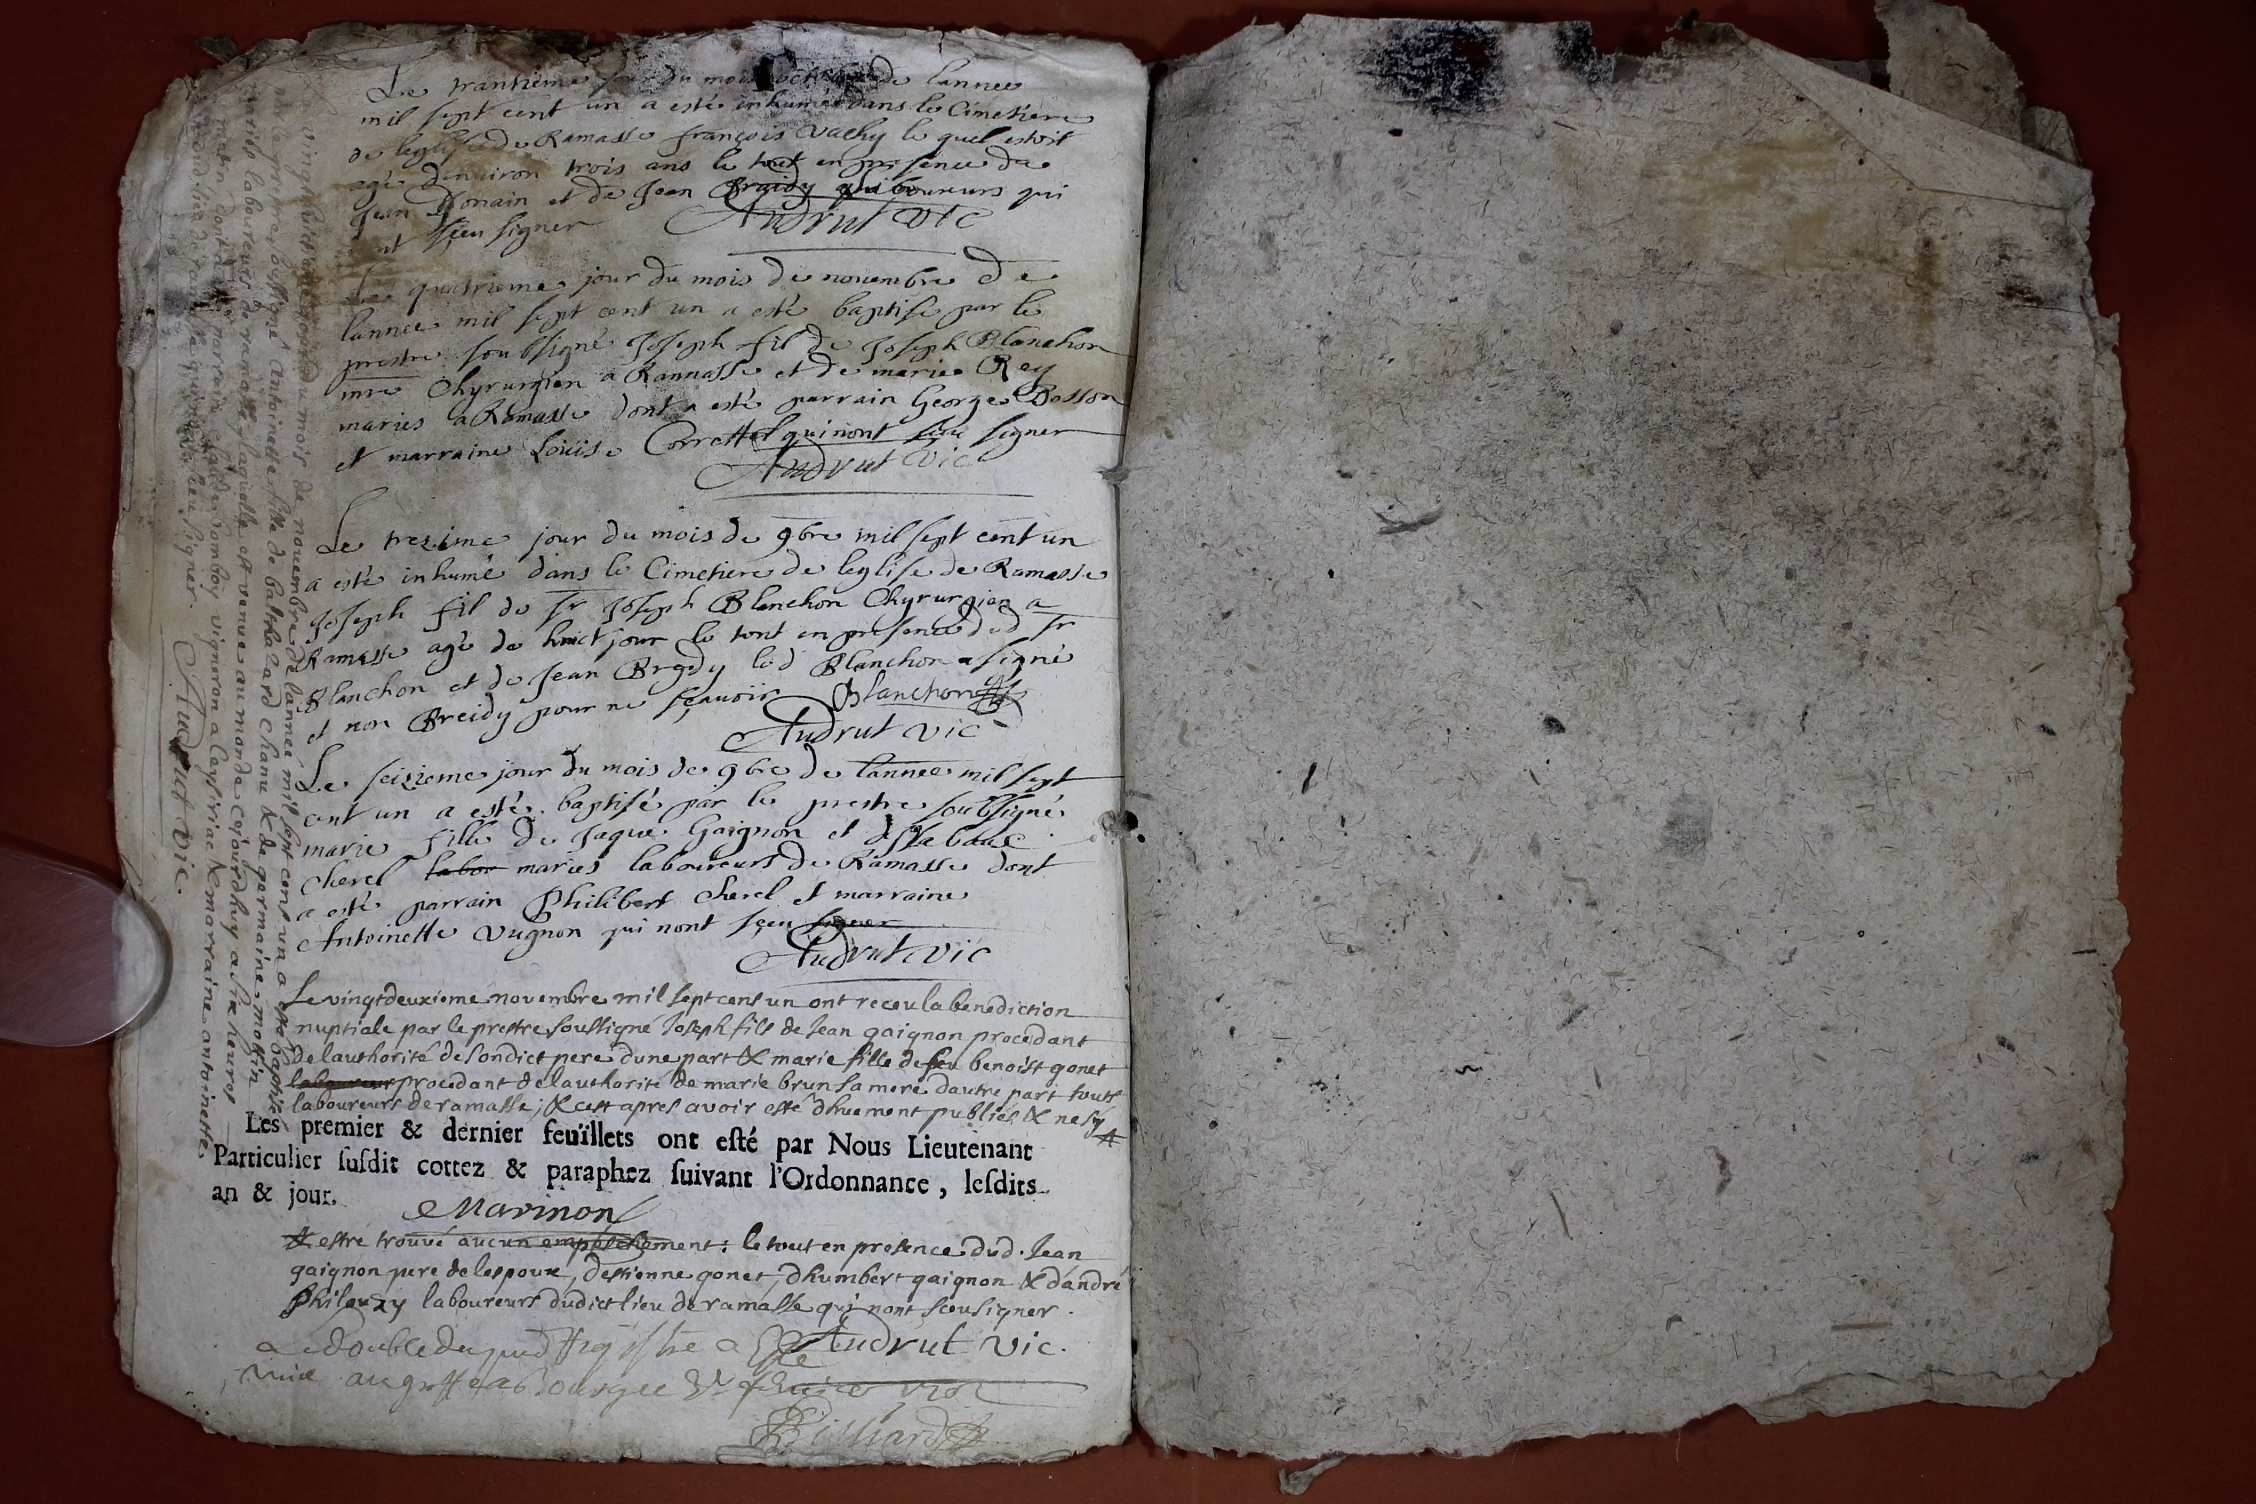 Le trantieme jour du mois octobre de lannee
mil sept cent un a esté inhumé dans le Cimetiere
de leglise de Ramasse françois vachy le quel estoit
agé denviron trois ans le tout en presence de
Jean et de Jean Breidy laboureurs qui
nont sçeu signer Audrut vic
Le quatrieme jour du mois de nouembre de
lannee mil sept cent un a esté baptisé par le
prestre soubsigné Joseph fil de Joseph Blanchon
mre Chyrurgien a Rammasse et de marie Rey
maries a Ramasse dont a esté parrain George Bosson
et marraine Loüise Correttet qui nont sceu signer
Audrut vic
Le trezieme jour du mois de 9bre mil sept cent un
a esté inhumé dans le Cimetiere de leglise de Ramasse
Joseph fil de Sr Joseph Blanchon Chyrurgien a
Ramasse agé de huict jour le tout en presence dud Sr
Blanchon et de Jean Bredy led Blanchon a signé
et non Breidy pour ne sçauoir Blanchon
Audrut vic
Le seizieme jour du mois de 9bre de lannee mil sept
cent un a esté baptisé par le prestre soubsigné
marie fille de Jaque Gaignon et
Cherel labor maries laboureurs de Ramasse dont
a esté parrain Philibert Cherel et marraine
Antoinette vugnon qui nont sçeu signer
Audrut vic
Le vingtdeuxieme novembre mil sept cens un ont receu la benediction
nuptiale par le prestre soussigné Joseph fils de Jean gaignon procedant
de lauthorité de son dict pere dune part & marie fille de feu benoist gonet
laboureur procedant de lauthorité de marie brun sa mere dautre part touts
laboureurs de ramasse; & cest apres avoir esté dhuement publiés & ne sý
Les premier & dernier feüillets ont esté par Nous Lieutenant
Particulier susdit cottez & paraphez suivant l'Ordonnance, lesdits
an & jour.
Marinon
estre trouvé aucun empeschement: le tout en presence dud. Jean
gaignon pere de lespoux, destienne gonet, dhumbert gaignon & dandré
laboureurs dudict lieu de ramasse qui nont sceu signer.
Audrut vic.
Le double du pnt Registre a Esté
mis au greffe a bourg
vingt huictieme jour du mois de nouembre de lannee mil sept cens un a esté baptisée
par le prestre soussigné Antoinette fille de balthazard chanu & de germaine mossin
mariés laboureurs de ramasse laquelle est venue au monde cejourdhuy a six heures
du matin dont a esté parrain vigneron a Ceyseriac & marraine antoinette
dudict lieu de ramasse qui nont sceu signer. Audrut vic.